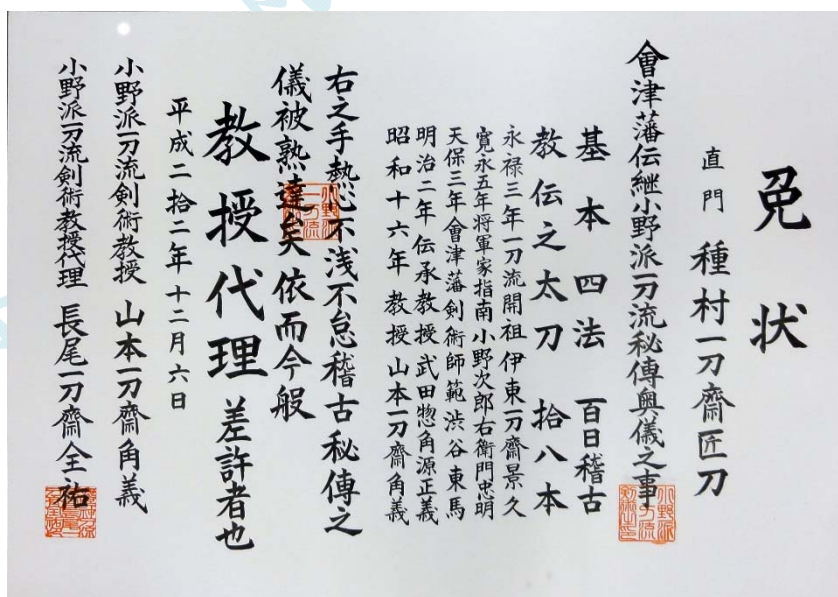 免状
直門 種村一刀齋匠刀
會津藩伝継小野派一刀流秘傳奥儀之事
基本四法 百日稽古
教伝之太刀 拾八本
永禄三年一刀流開祖伊東一刀齋景久
寛永五年将軍家指南小野次郎右衛門忠明
天保三年會津藩剣術師範渋谷東馬
明治二年伝承教授武田惣角源正義
昭和十六年教授山本一刀齋角義
右之手熱心不浅不怠稽古秘傳之
儀被熟達矣依而今般
教授代理 差許者也
平成二拾二年十二月六日
小野派一刀流剣術教授 山本一刀齋角義
小野派一刀流剣術教授代理 長尾一刀齋全祐